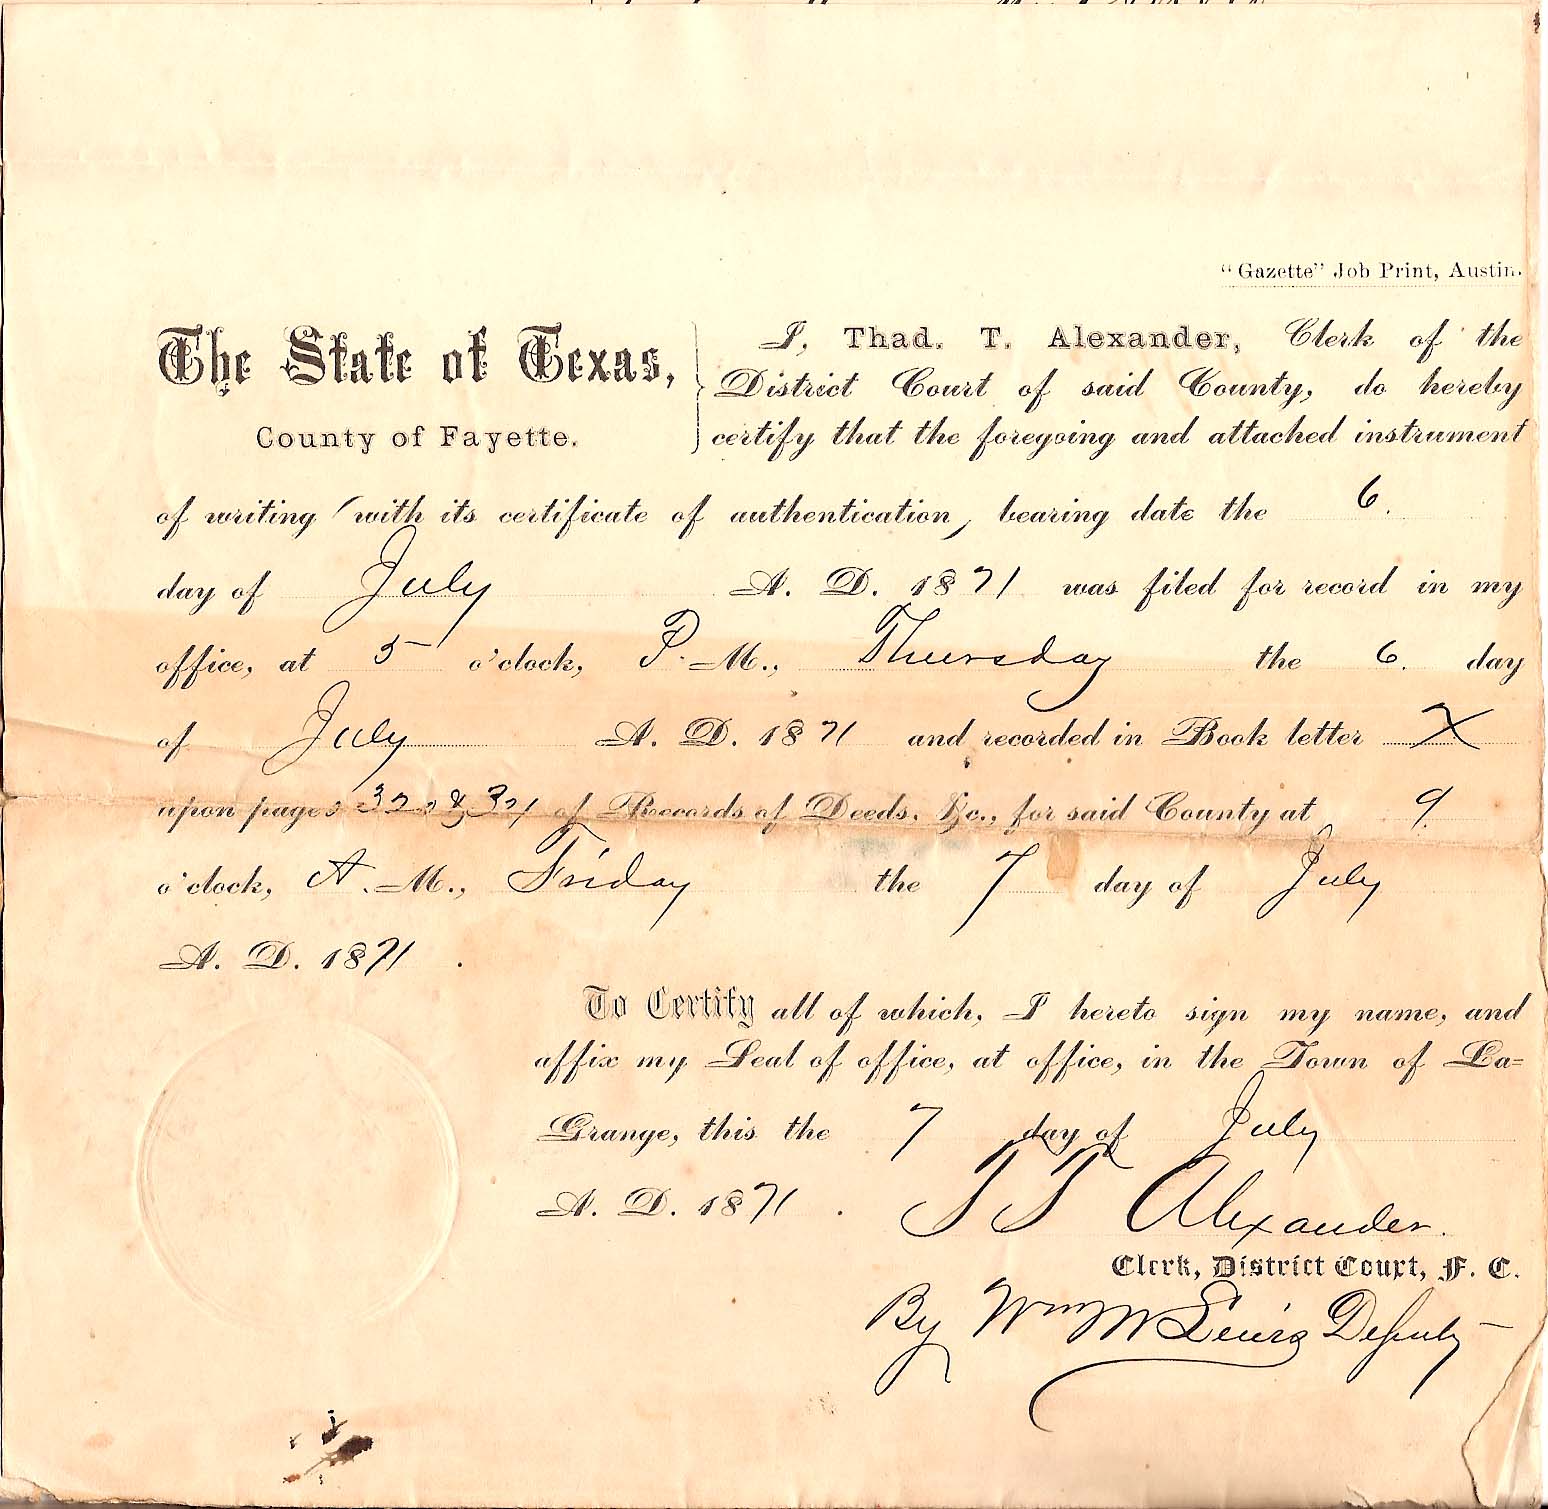 "Gazette" Job Print, Austin.
The State of Texas,
County of Fayette.
I, Thad. T. Alexander, Clerk of the
District Court of said County, do hereby
certify that the foregoing and attached instrument
of writing (with its certificate of authentication, bearing date the 6.
day of July A. D. 1871 was filed for record in my
office, at 5 o'clock, P. M., Thursday the 6. day
of July A. D. 1871 and recorded in Book letter X
upon pages 320 & 321 of Records of Deeds, &c., for said County at 9
o'clock, A. M., Friday the 7 day of July
A. D. 1871 .
To Certify all of which, I hereto sign my name, and
affix my Seal of office, at office, in the Town of La-
Grange, this the 7 day of July
A. D. 1871 . T T Alexander.
Clerk, District Court, F. C.
By Wm M Lewis Deputy